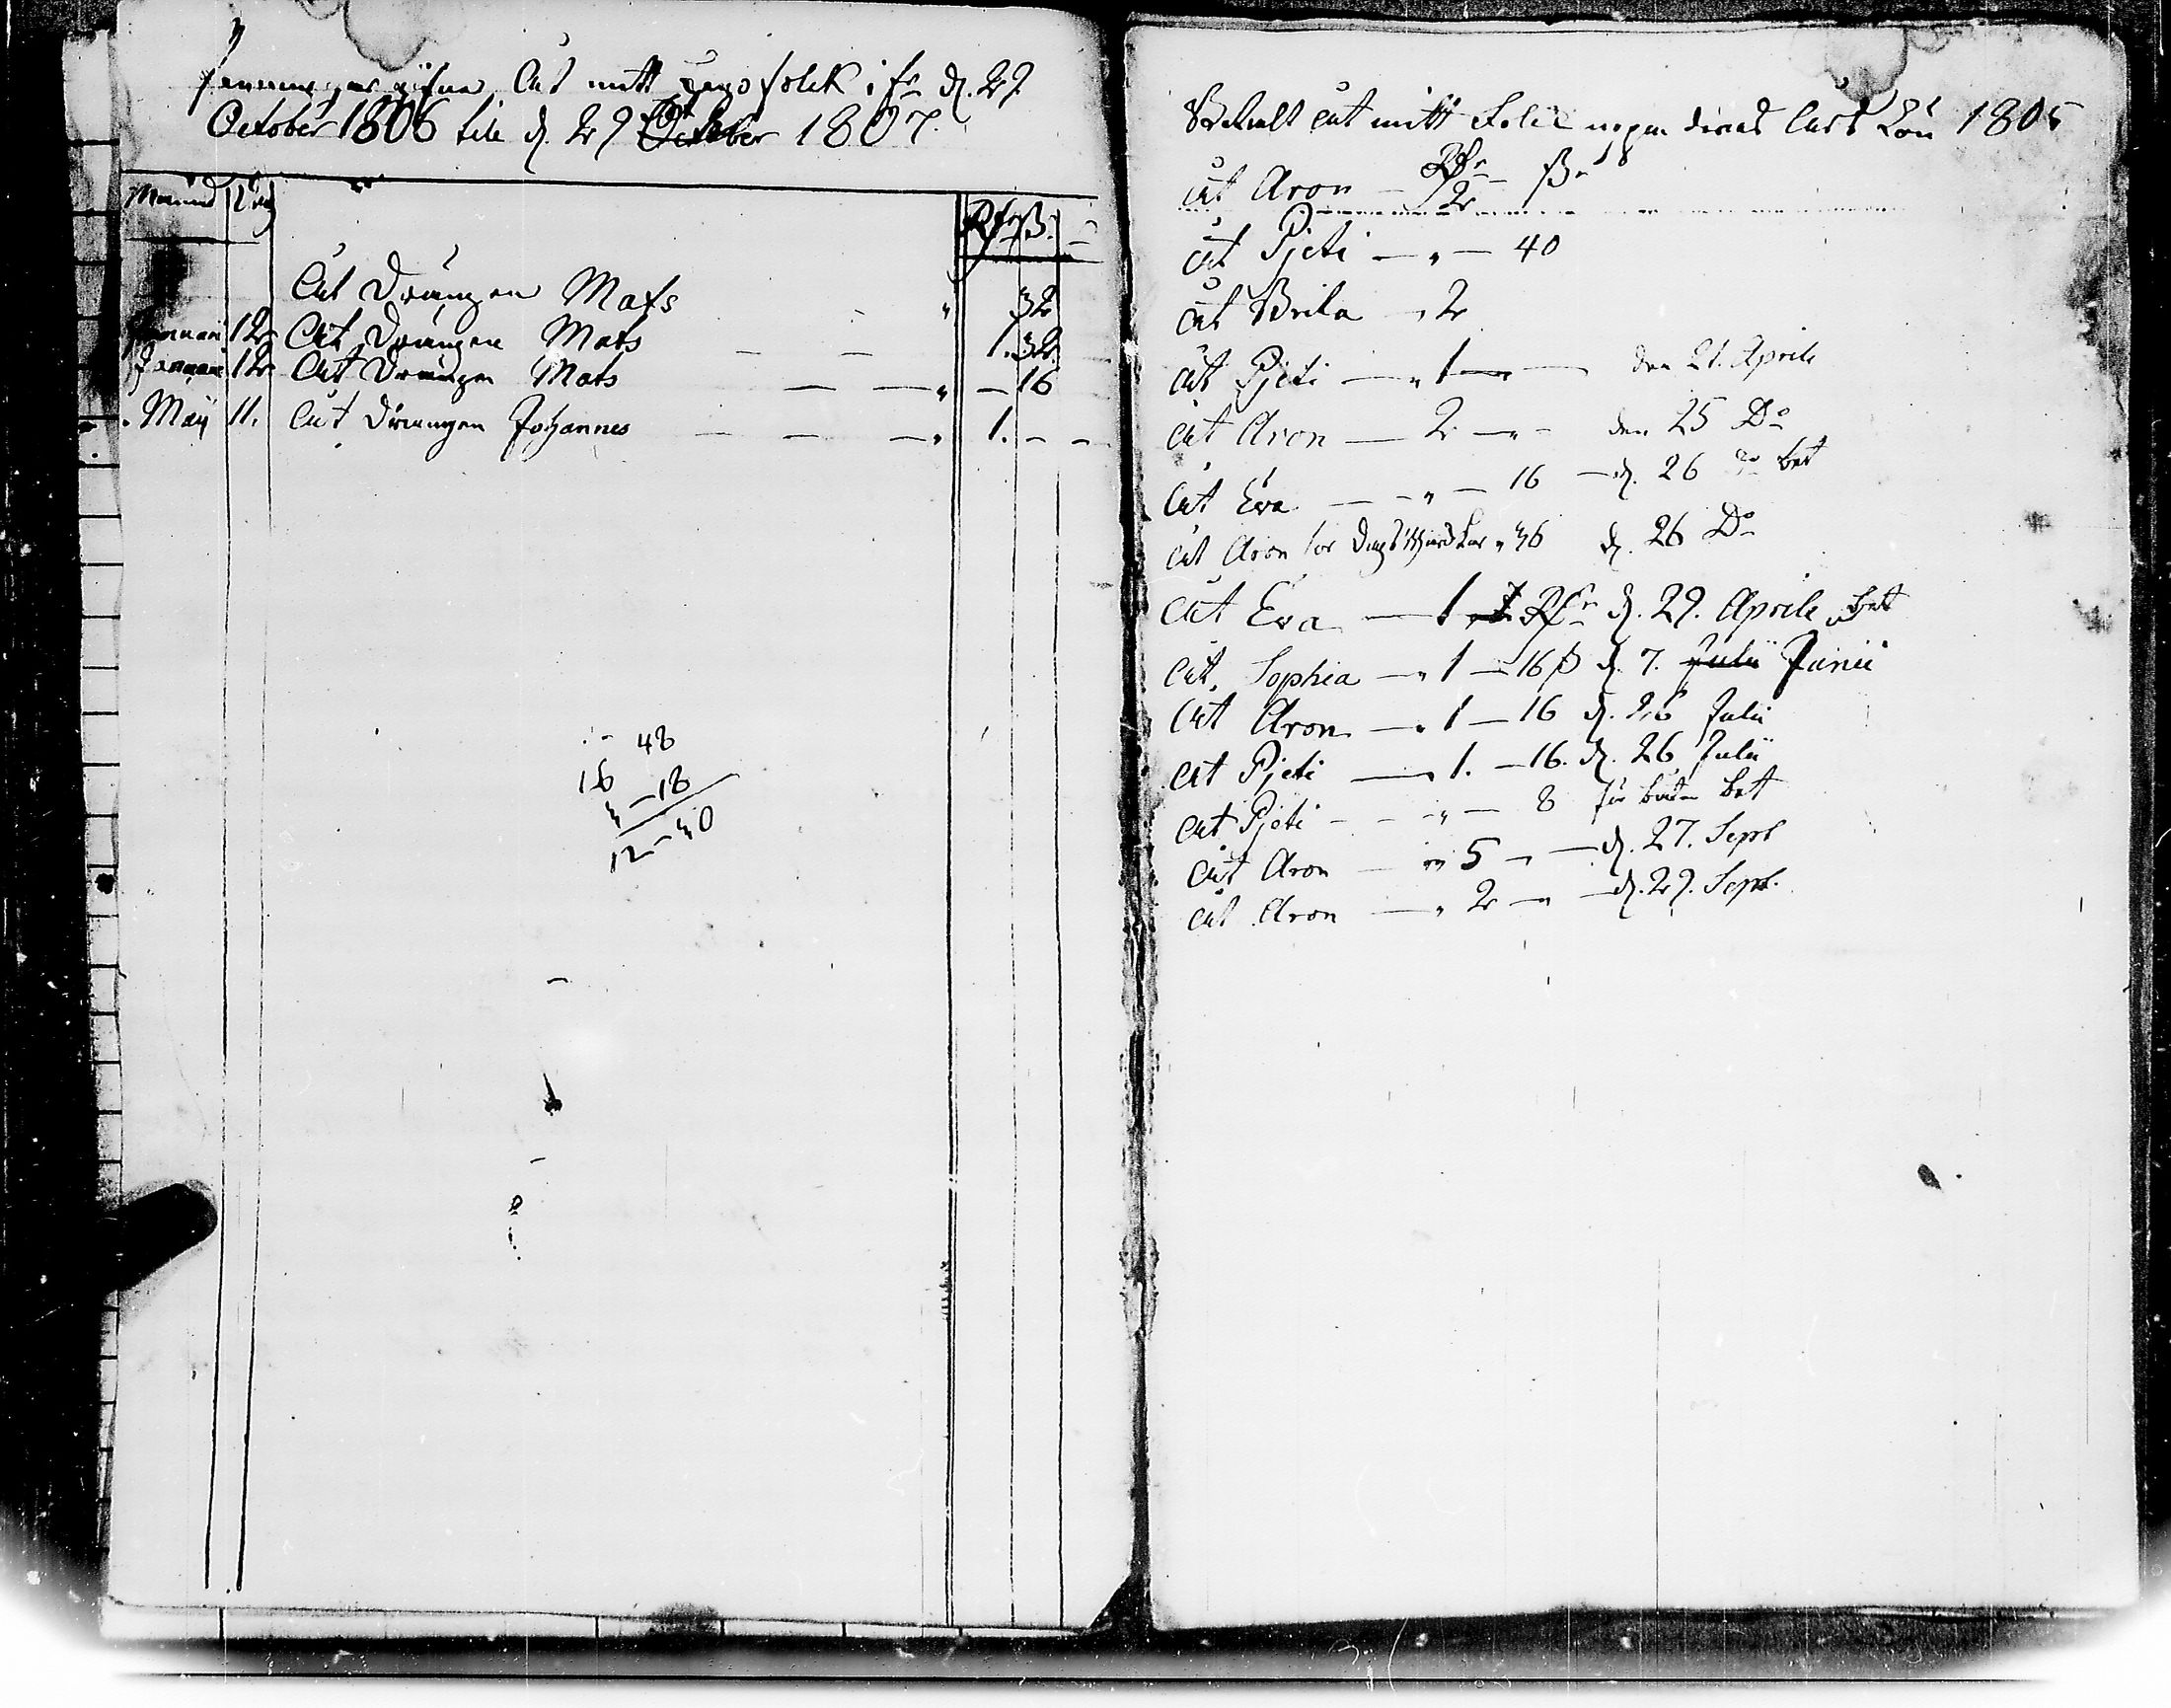 Penningar gifna åt mitt folck i fr d. 29
October 1806 till d. 29 October 1807.
Månad Dag Rdr ß.
åt Drängen Mats " 32
Januari 12 åt Drängen Mats — — 1. 32.
Januari 12 åt Drängen Mats — — " — 16
Maij 11. åt Drängen Johannes — — — " 1. — —
48
16 — 18
12 — 40
Betalt åt mitt Folck deras Lön 1805
Rdr ß
åt Aron — 2
åt Pjeti — " — 40
åt Brita — 2
åt Pjeti — " 1 — den 21. Aprile
åt Aron — 2 — " — den 25 Do
åt Eva — — " — 16 — d. 26 Do bet
åt Aron för " 36 d. 26 Do
åt Eva — 1 Rdr d. 29. Aprile bet
åt Sophia — " 1 — 16 ß d. 7. Julii Junii
åt Aron — " 1 — 16 d. 26 Julii
åt Pjeti — 1. — 16. d. 26 Julii
åt Pjeti — — " — 8 för bet
åt Aron — " 5 — — d. 27. Sept
åt Aron — " 2 — " — d. 29. Sept.